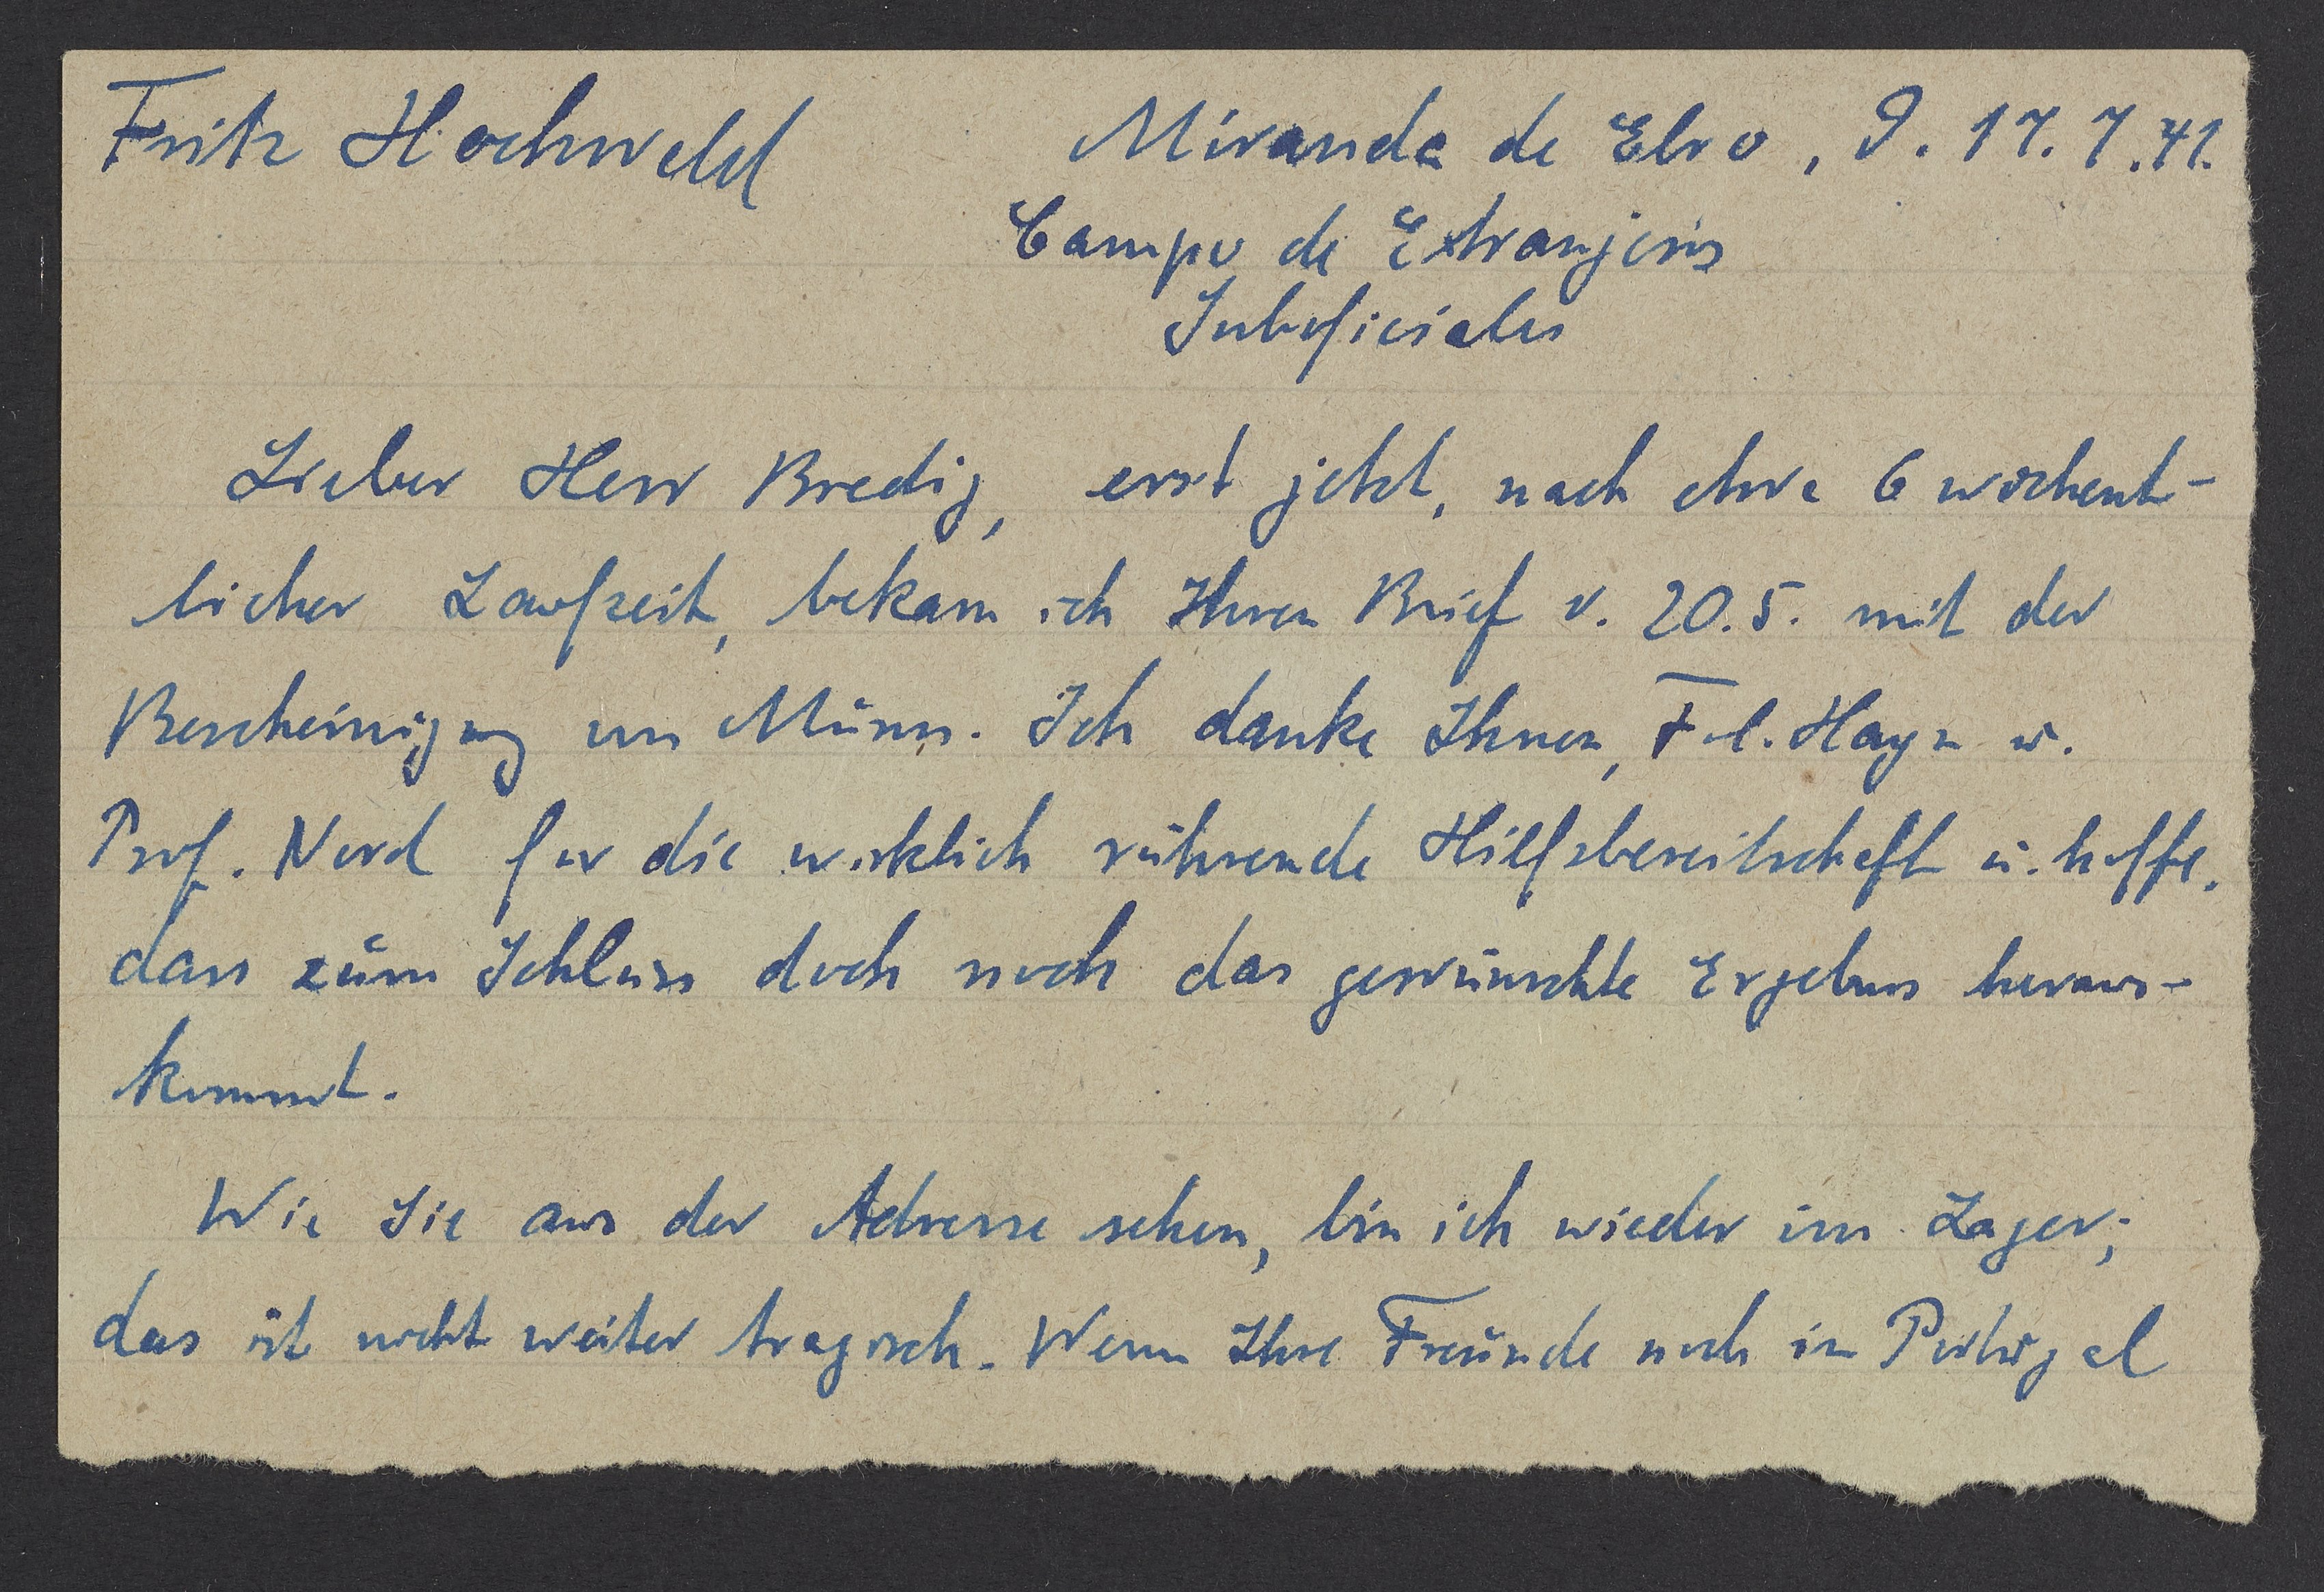 Fritz Hochwald
Miranda de Ebro, 9. 17.7.41.
Campo de Extranjeros
Suboficiales
Lieber Herr Bredig, erst jetzt, nach etwa 6 wöchent-
licher Laufzeit, bekam ich Ihren Brief v. 20.5. mit der
Bescheinigung um Münn. Ich danke Ihnen, Frl. Hayn u.
Prof. Nord für die wirklich rührende Hilfsbereitschaft u. hoffe,
dass zum Schluss doch noch das gewünschte Ergebnis heraus-
kommt.
Wie Sie aus der Adresse sehen, bin ich wieder im Lager;
das ist nicht weiter tragisch. Wenn Ihre Freunde noch in Portugal